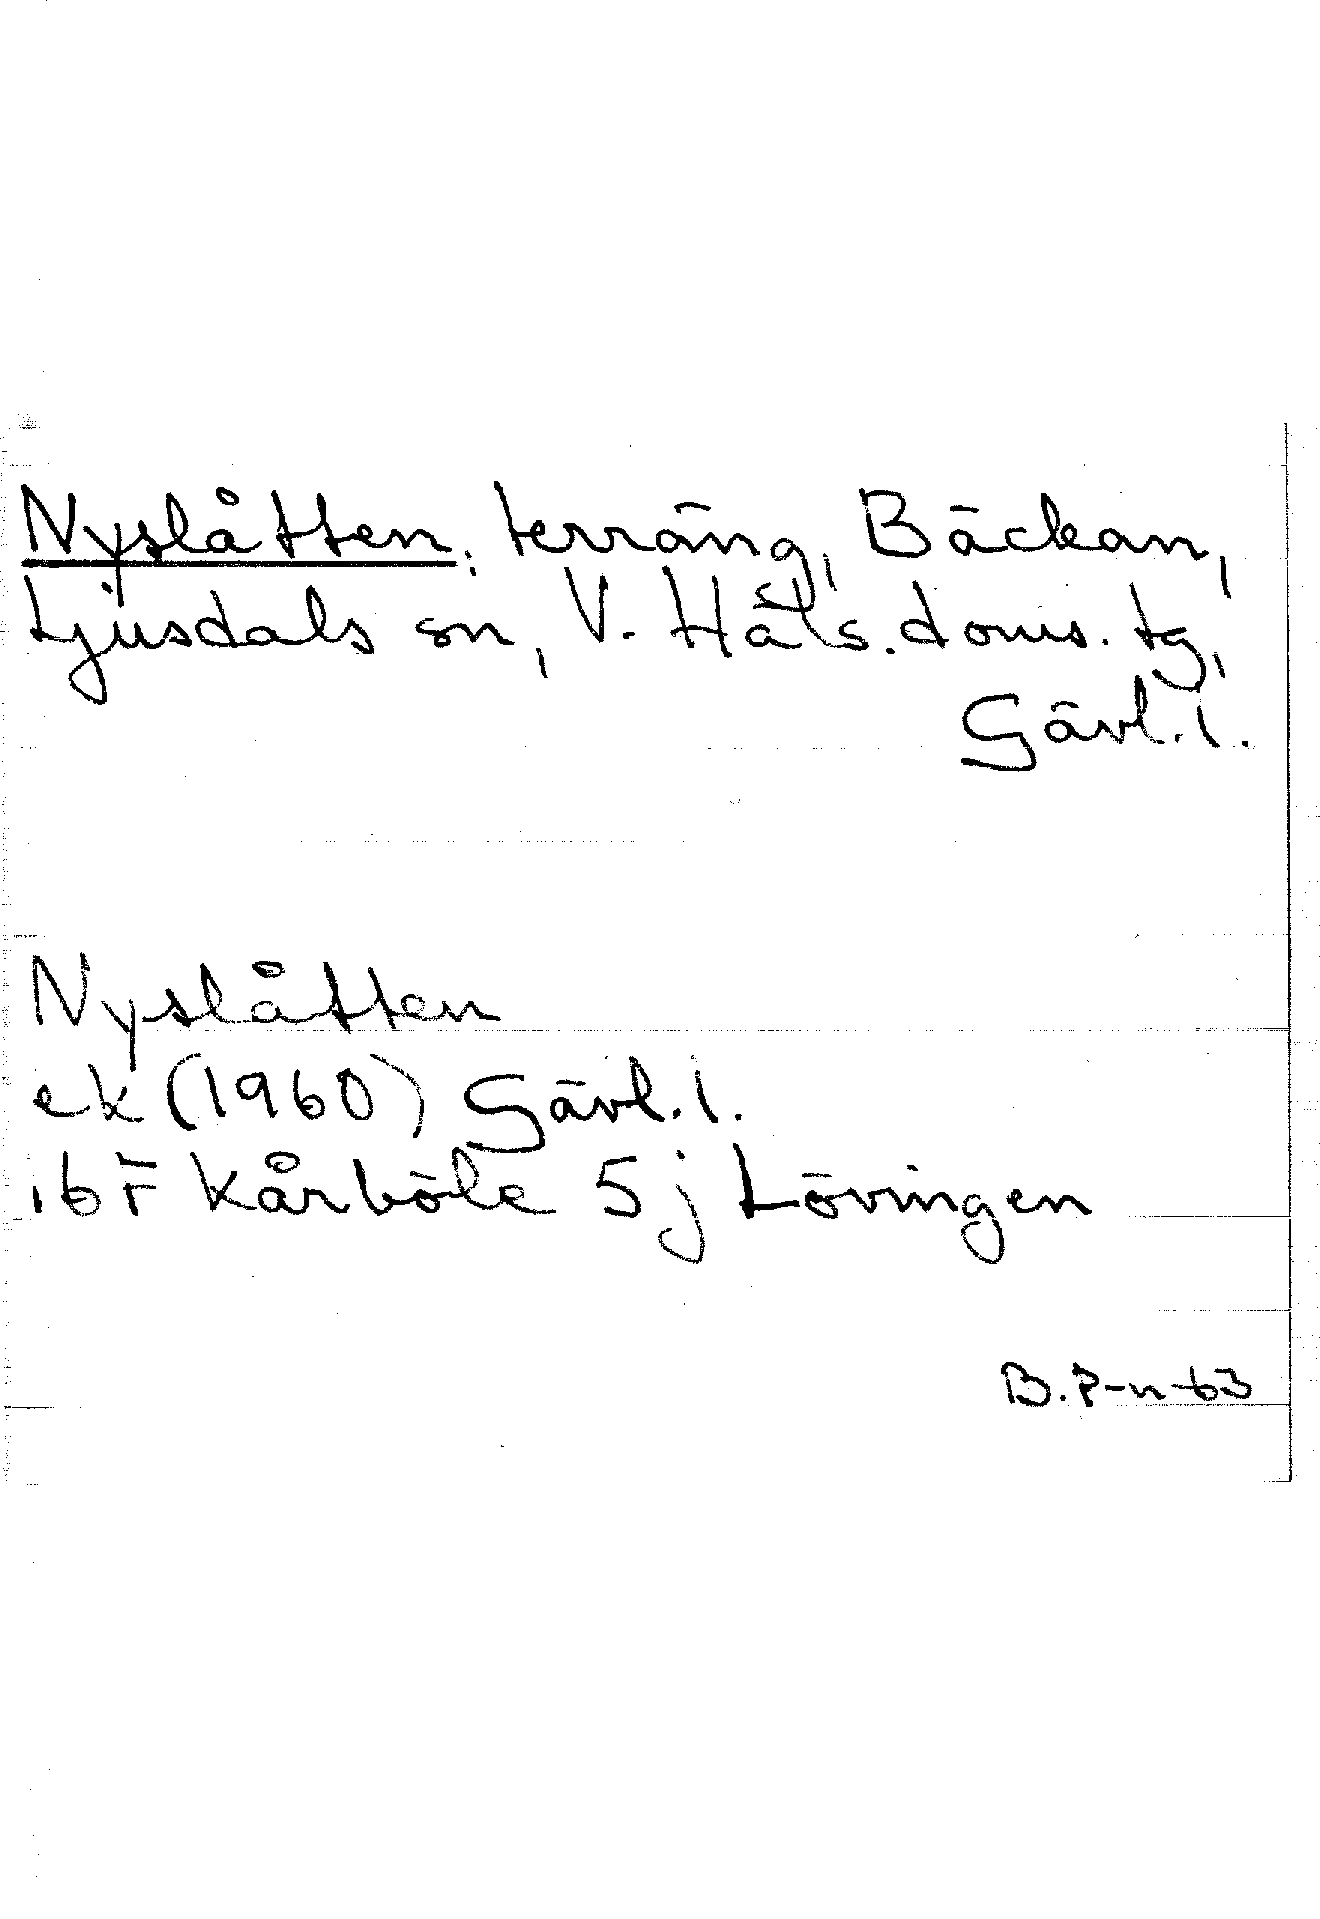 Nyslåtten, terräng, Bäckan,
Ljusdals sn, V. Häls. doms. tg,
Gävl. l.
Nyslåtten
ek (1960) Gävl. l.
16F Kårböle 5 j Lövingen
B.P-n-63